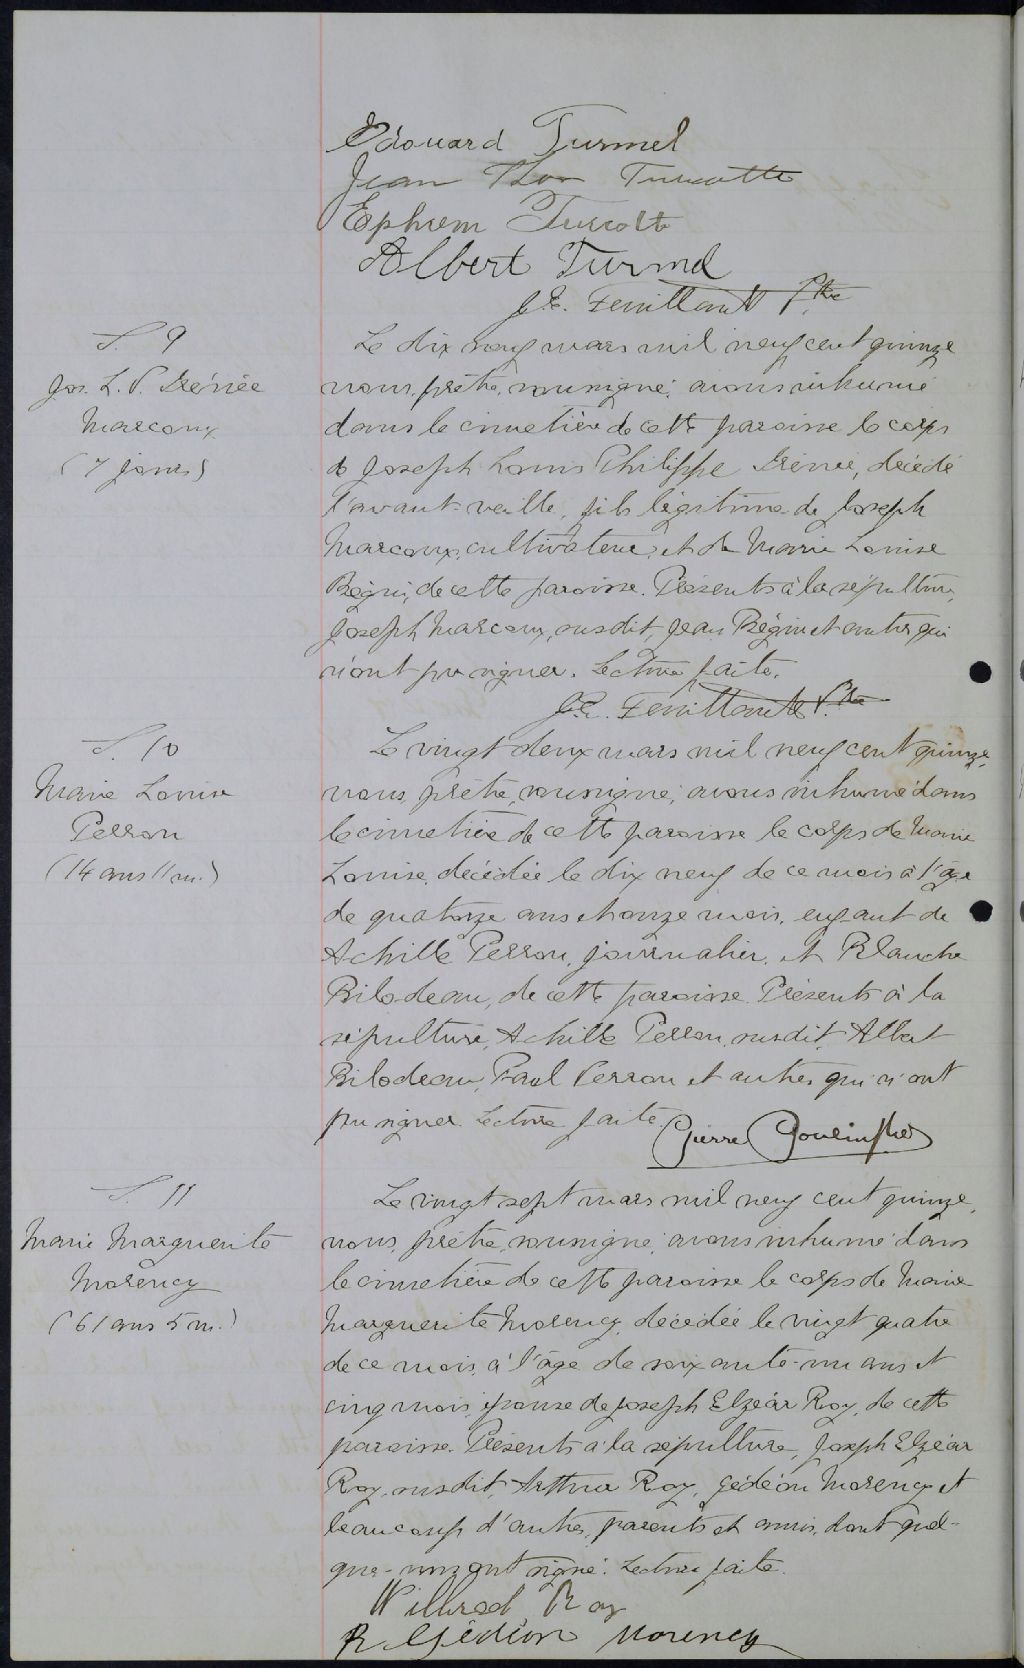 Edouard Turmel
Jean Thos Turcotte
Ephrem Turcotte
Albert Turmel
J. E. Feuiltault Ptre
S. 9
Jos. L. P. Irénée
Marcoux
(7 jours)
Le dix neuf mars mil neuf cent quinze
nous, prêtre, soussigné, avons inhumé
dans le cimetière de cette paroisse le corps
de Joseph Louis Philippe Irénée, décédé
l'avant-veille, fils légitime de Joseph
Marcoux, cultivateur, et de Marie Louise
Bégin, de cette paroisse. Présents à la sépulture,
Joseph Marcoux, susdit, Jean Bégin et autres qui
n'ont pu signer. Lecture faite.
J. E. Feuiltault Ptre
S. 10
Marie Louise
Perron
(14 ans 11 m.)
Le vingt deux mars mil neuf cent quinze,
nous, prêtre, soussigné, avons inhumé dans
le cimetière de cette paroisse le corps de Marie
Louise, décédée le dix neuf de ce mois à l'âge
de quatorze ans et onze mois, enfant de
Achille Perron, journalier, et Blanche
Bilodeau, de cette paroisse. Présents à la
sépulture, Achille Perron, susdit, Albert
Bilodeau, Paul Perron et autres qui n'ont
pu signer. Lecture faite.
Pierre Poulin ptre
S. 11
Marie Marguerite
Morency
(61 ans 5 m.)
Le vingt sept mars mil neuf cent quinze,
nous, prêtre, soussigné, avons inhumé dans
le cimetière de cette paroisse le corps de Marie
Marguerite Morency, décédée le vingt quatre
de ce mois, à l'âge de soixante-un ans et
cinq mois, épouse de Joseph Elzéar Roy, de cette
paroisse. Présents à la sépulture, Joseph Elzéar
Roy, susdit, Arthur Roy, Gédéon Morency et
beaucoup d'autres, parents et amis, dont quel-
que-uns ont signé. Lecture faite.
Wilfred Roy
R Gédéon Morency